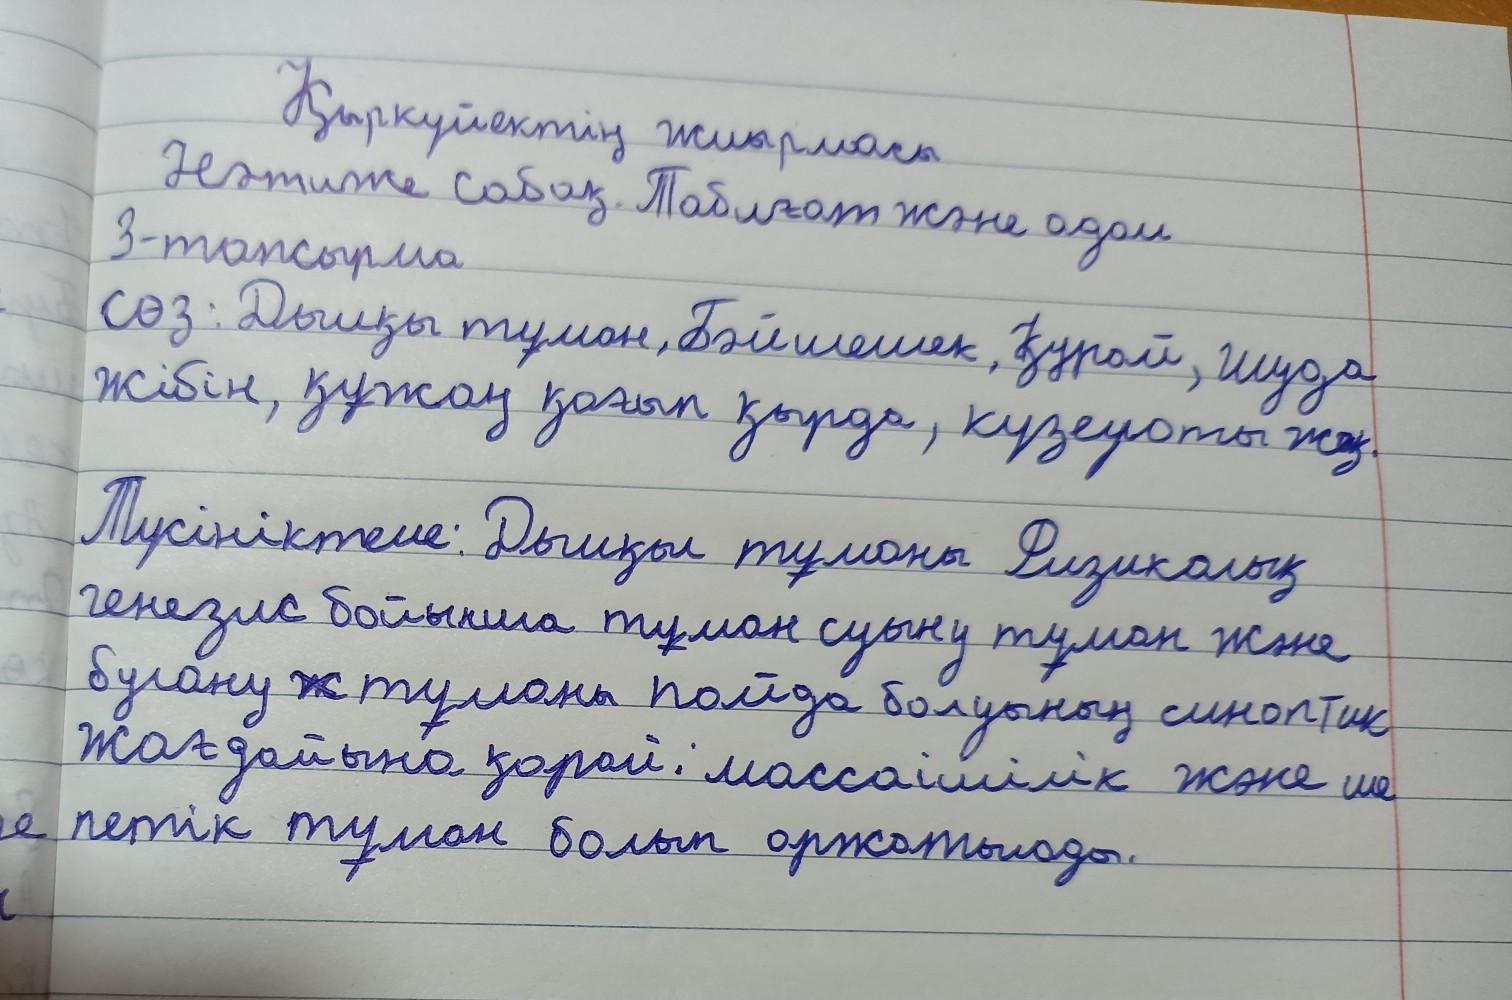 Қыркүйектің жиырмасы
Нәтиже сабақ. Табиғат және адам
3-тапсырма
сөз: Дымқы тұман, Бәйшешек, Құрай, шуда
жібін, құжаң қағып қырда, күзеуоты жақ.
Түсініктеме: Дымқыл тұманы Физикалық
генезис бойынша тұман суыну тұман және
булану ж тұманы пайда болуының синоптик
жағдайына қарай: массаішілік және ше
петік тұман болып аржатылады.